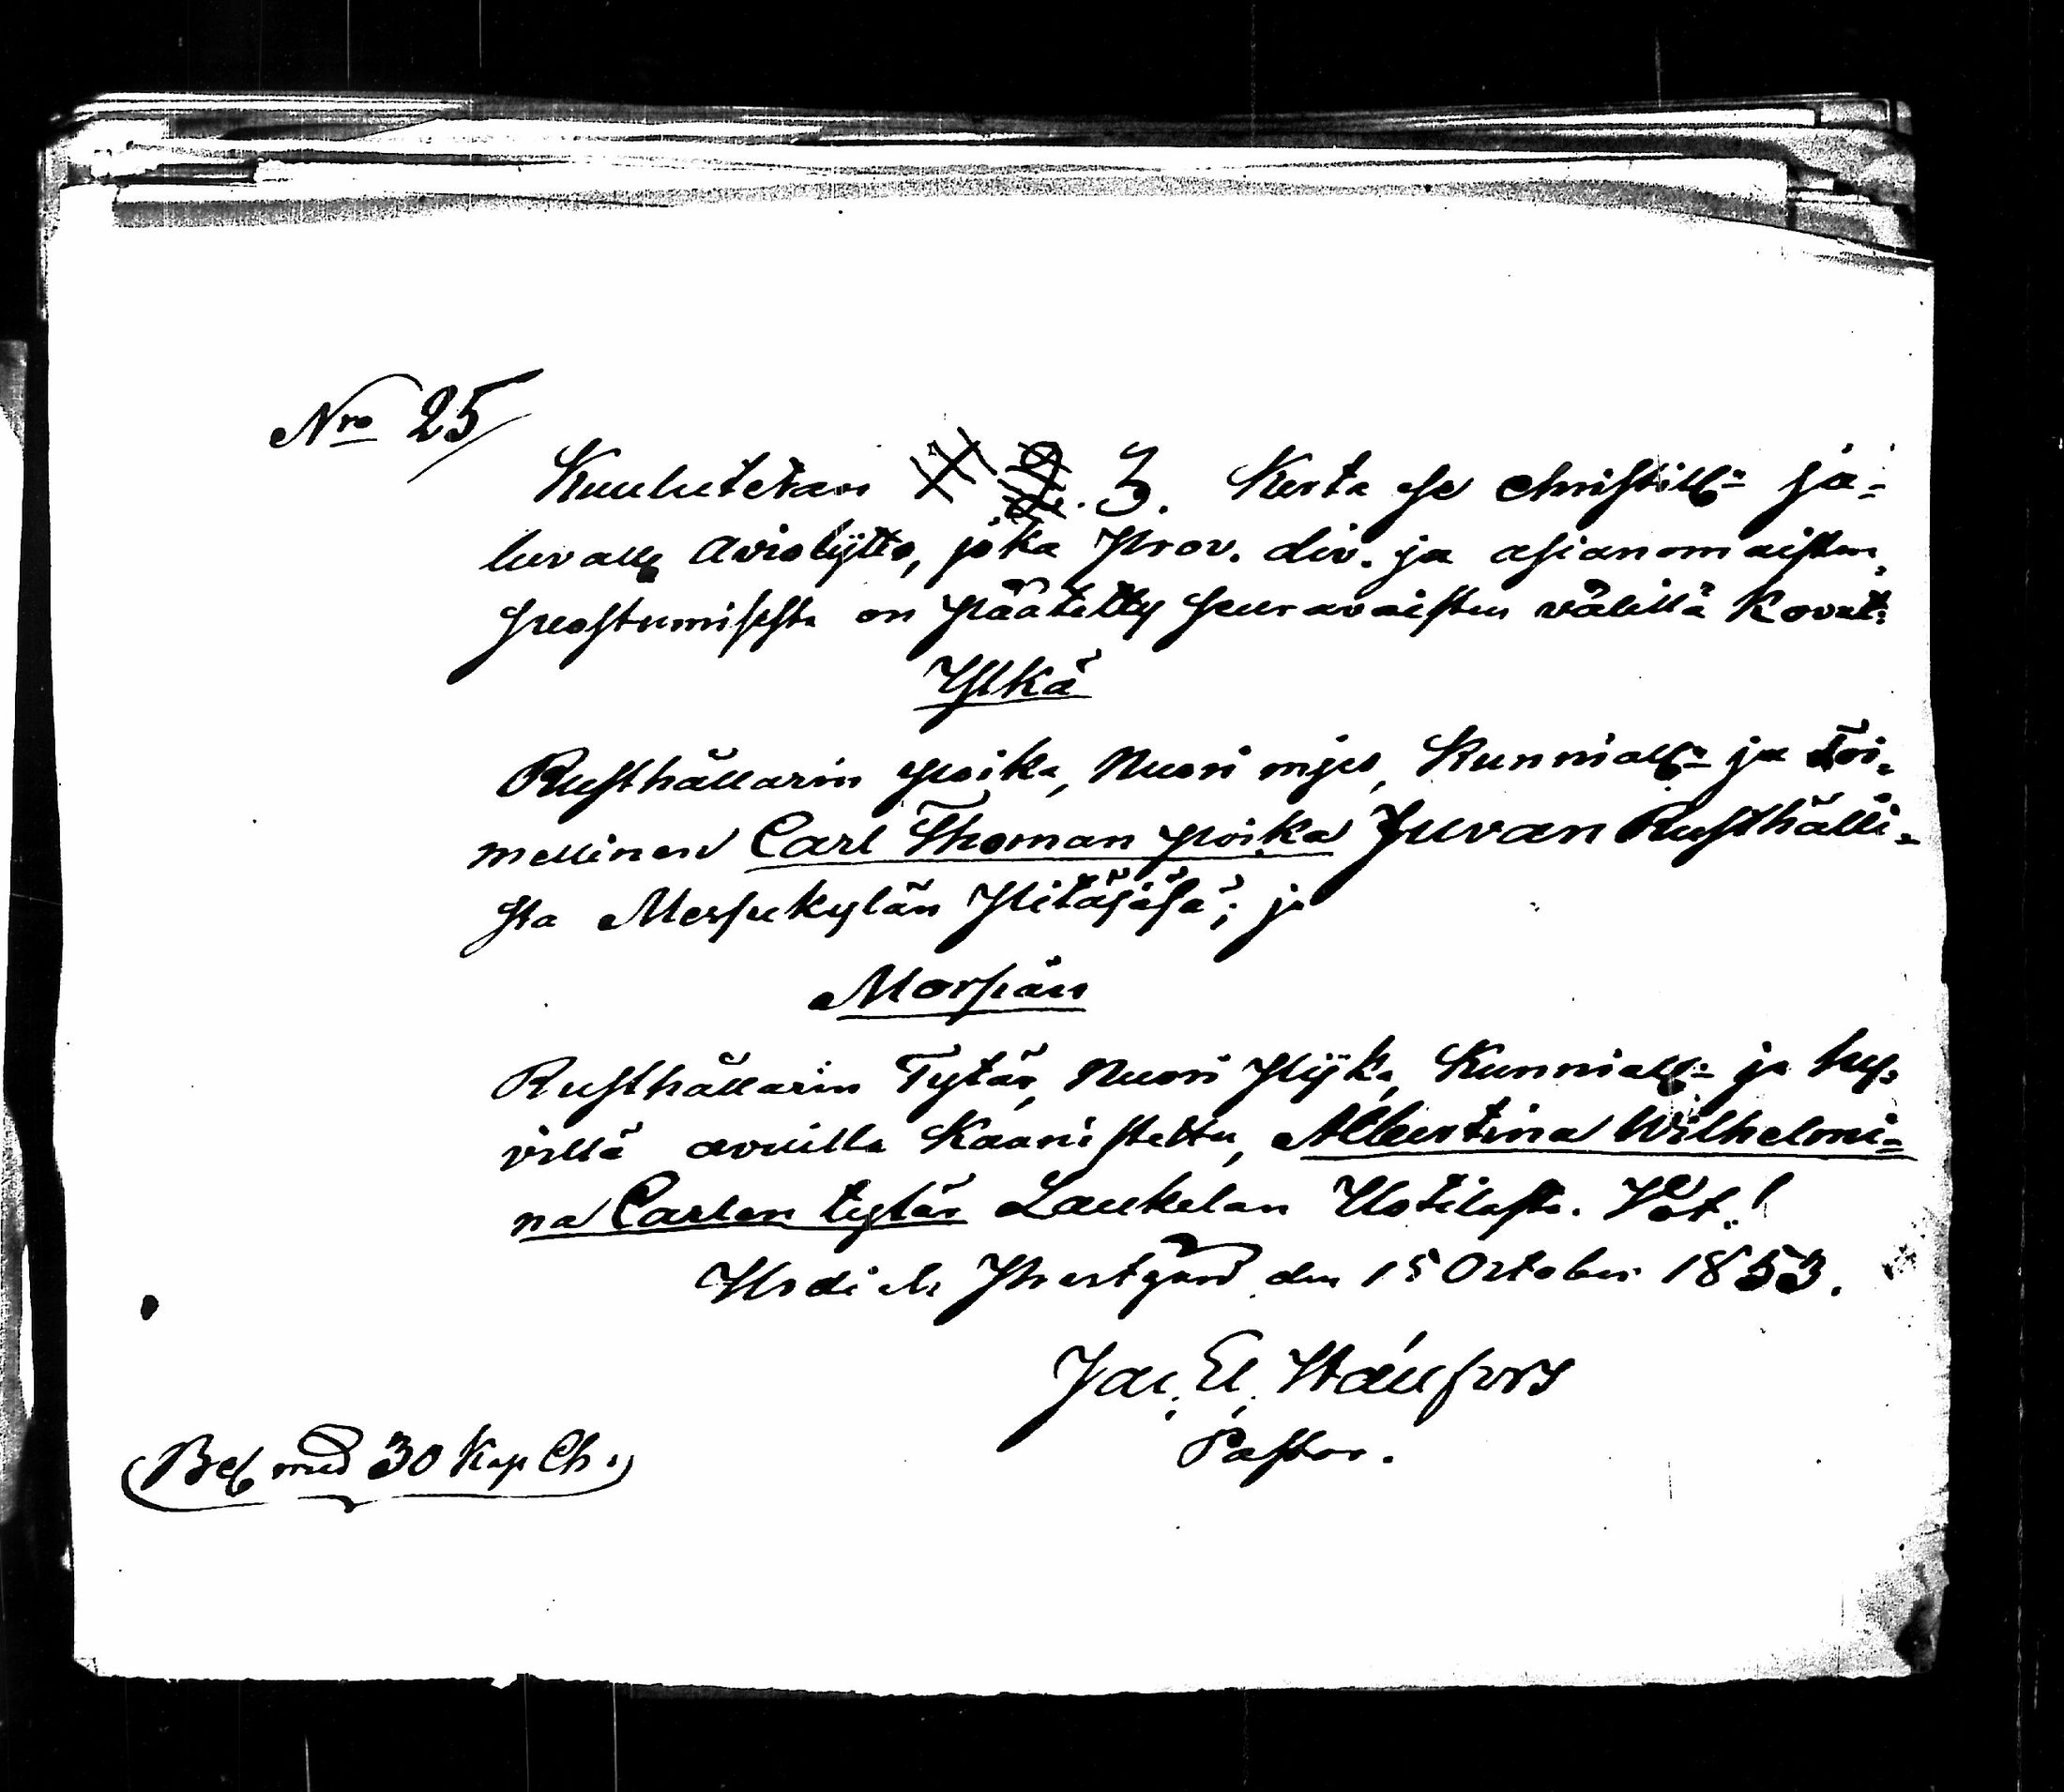 Nro 25/
Kuulutetan 3. Kerta se christill: ja-
luvall: Avioliitto, joka prov. div. ja asianomaisten
suostumisesta on päätetty seuravaisten välillä Kovat:
Ylkä
Rusthållarin poika, Nuori mjes, Kunniall: ja Toi-
mellinen Carl Thoman poika Juvan Rusthålli-
sta Messukylän Pitäjäsä; ja
Morsian
Rusthållarin Tytär, Nuori Pijka, Kunniall: ja hy-
villä avuilla Kaunistettu, Albertina Wilhelmi-
na Carlen tytär Laukelan Ustilasta.
Prestgård den 15 October 1853.
Jac. El.
Pastor.
(Bel. med 30 Kop Ch.)